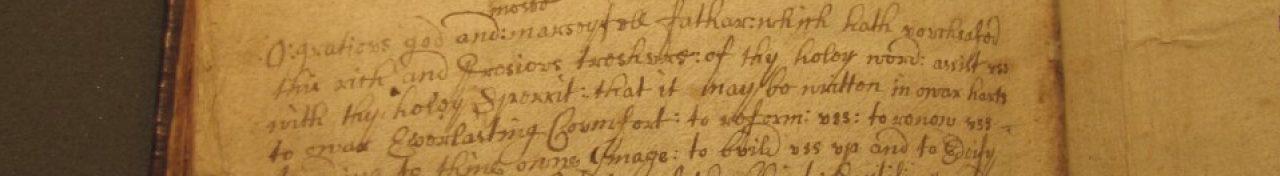 moste
O: gratiovs god and: marseyfvll fathar: which hath vowchsafed
this rich and Presiovs treshvre: of thy holey word: assist vs
with thy holey Sperrit: that it may be written in owar harts
to owar Everlasting Coumfort: to reform: vss: to renew vss
to thine owne Image: to bvild vss vp and to Edify